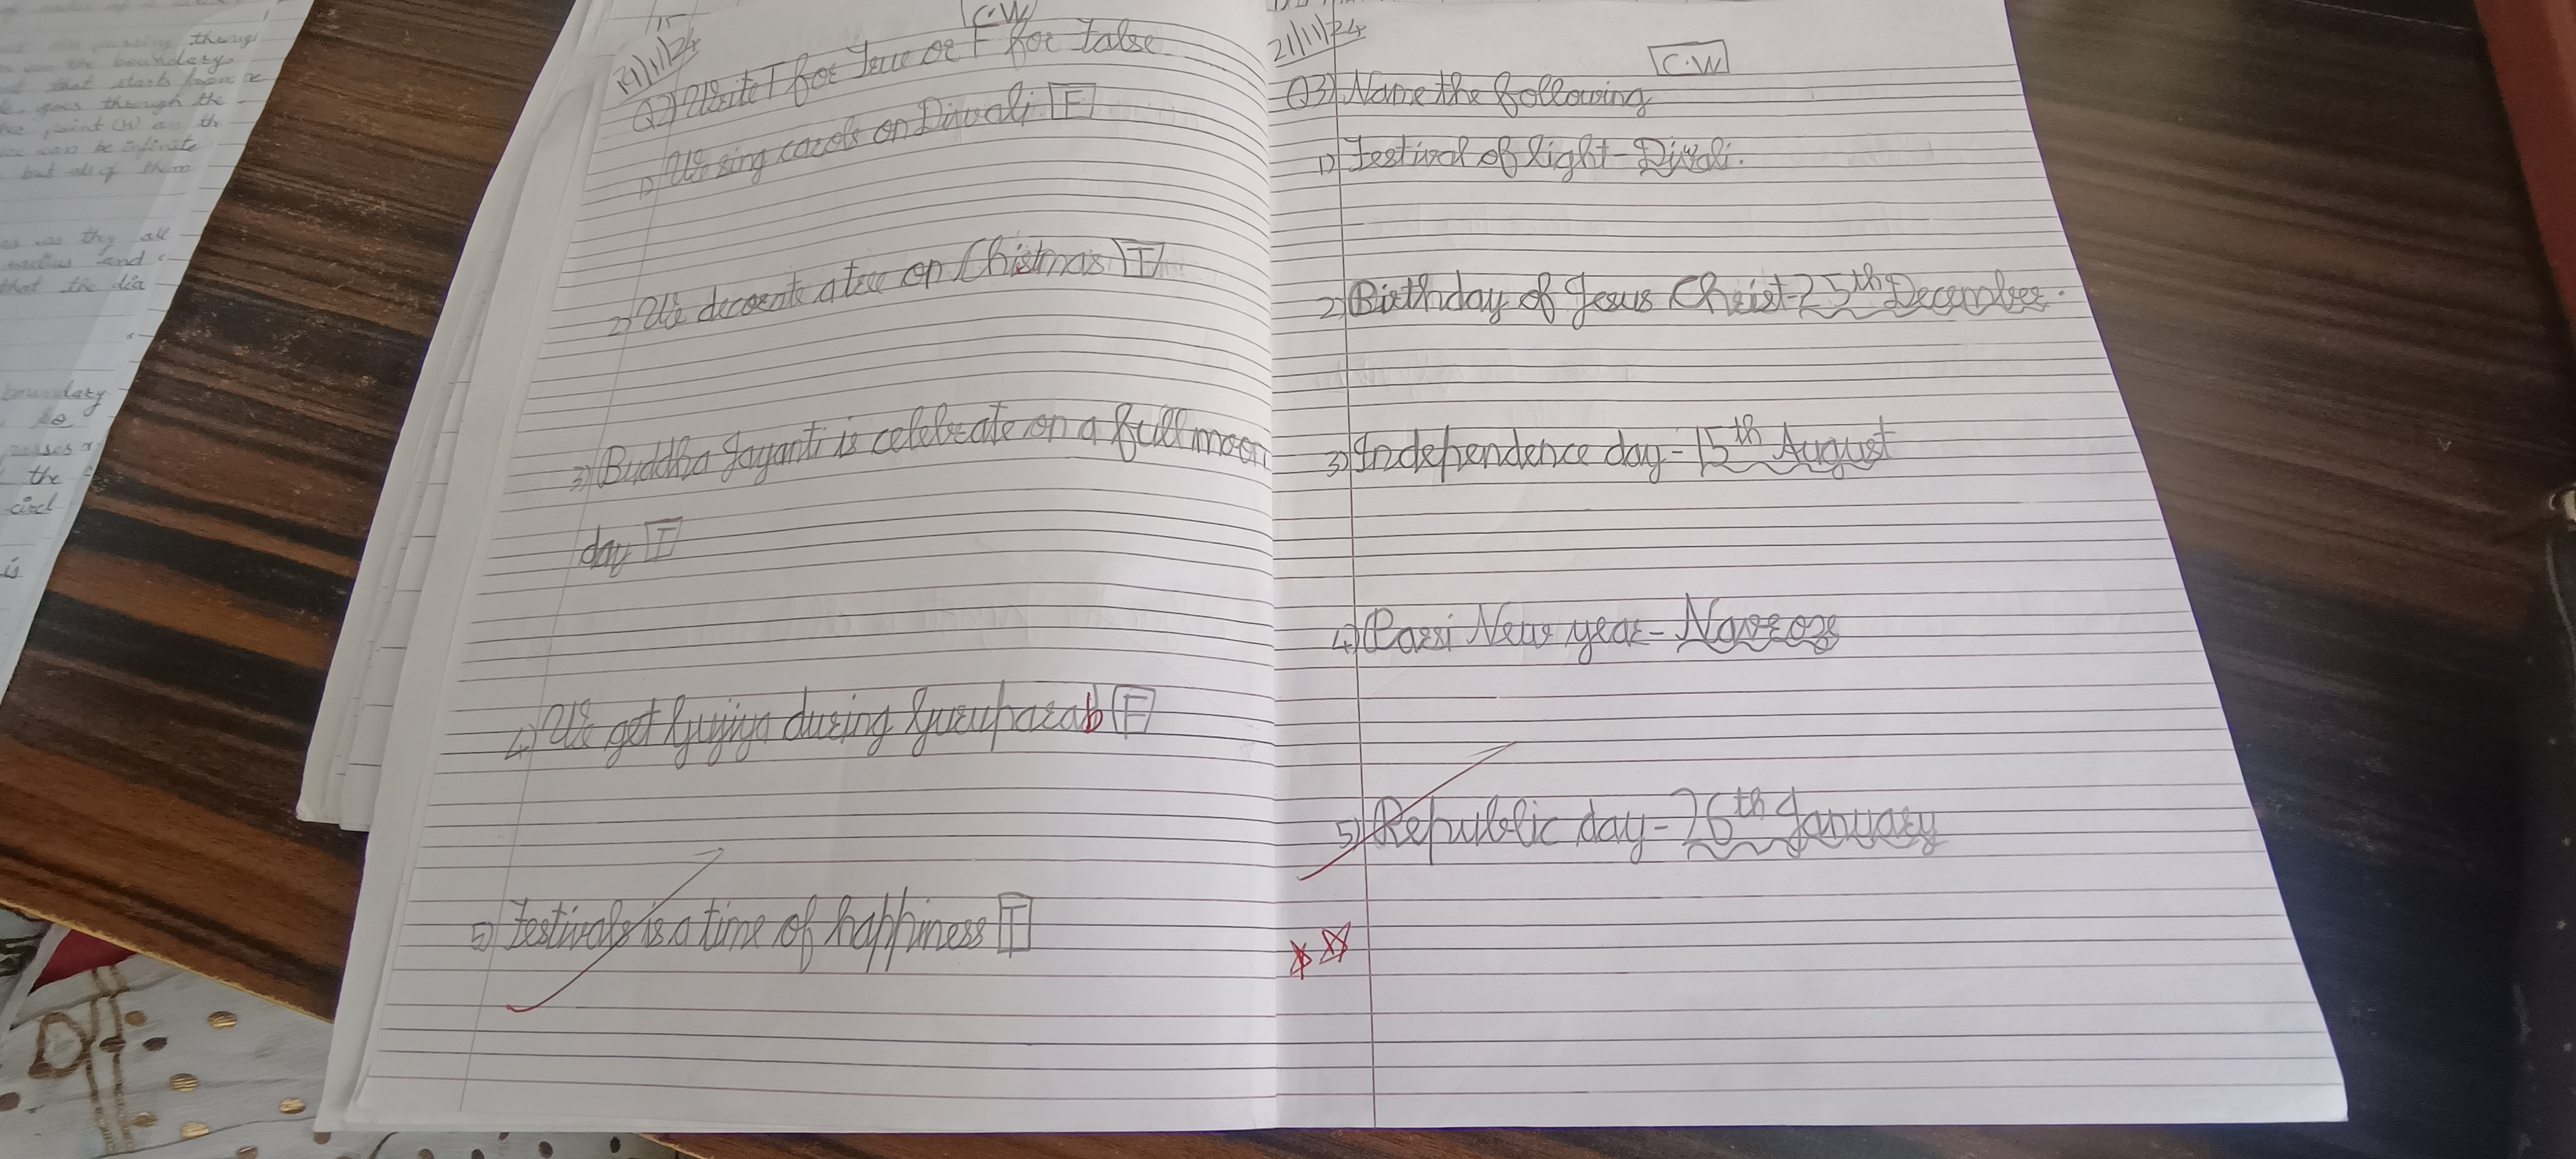 thenys
boundary
that starts from
goes through the
point (M) on th
can be infinite
but all of them
as they all
radius and
that the dia
boundary
passes
the
circl
is
C.W
21/11/24
Q2) Write T for True or F for False
1) We sing carols on Diwali F
2) We decorate a tree on Chistmas T
3) Buddha Jayanti is celebrate on a full moon
day T
4) We get gujiya during Guruparab F
5) Festivals is a time of happiness T
21/11/24
C.W
Q3) Name the following
1) Festival of light - Diwali.
2) Birthday of Jesus Christ - 25th December.
3) Independence day - 15th August
4) Parsi New year - Navroz
5) Republic day - 26th January